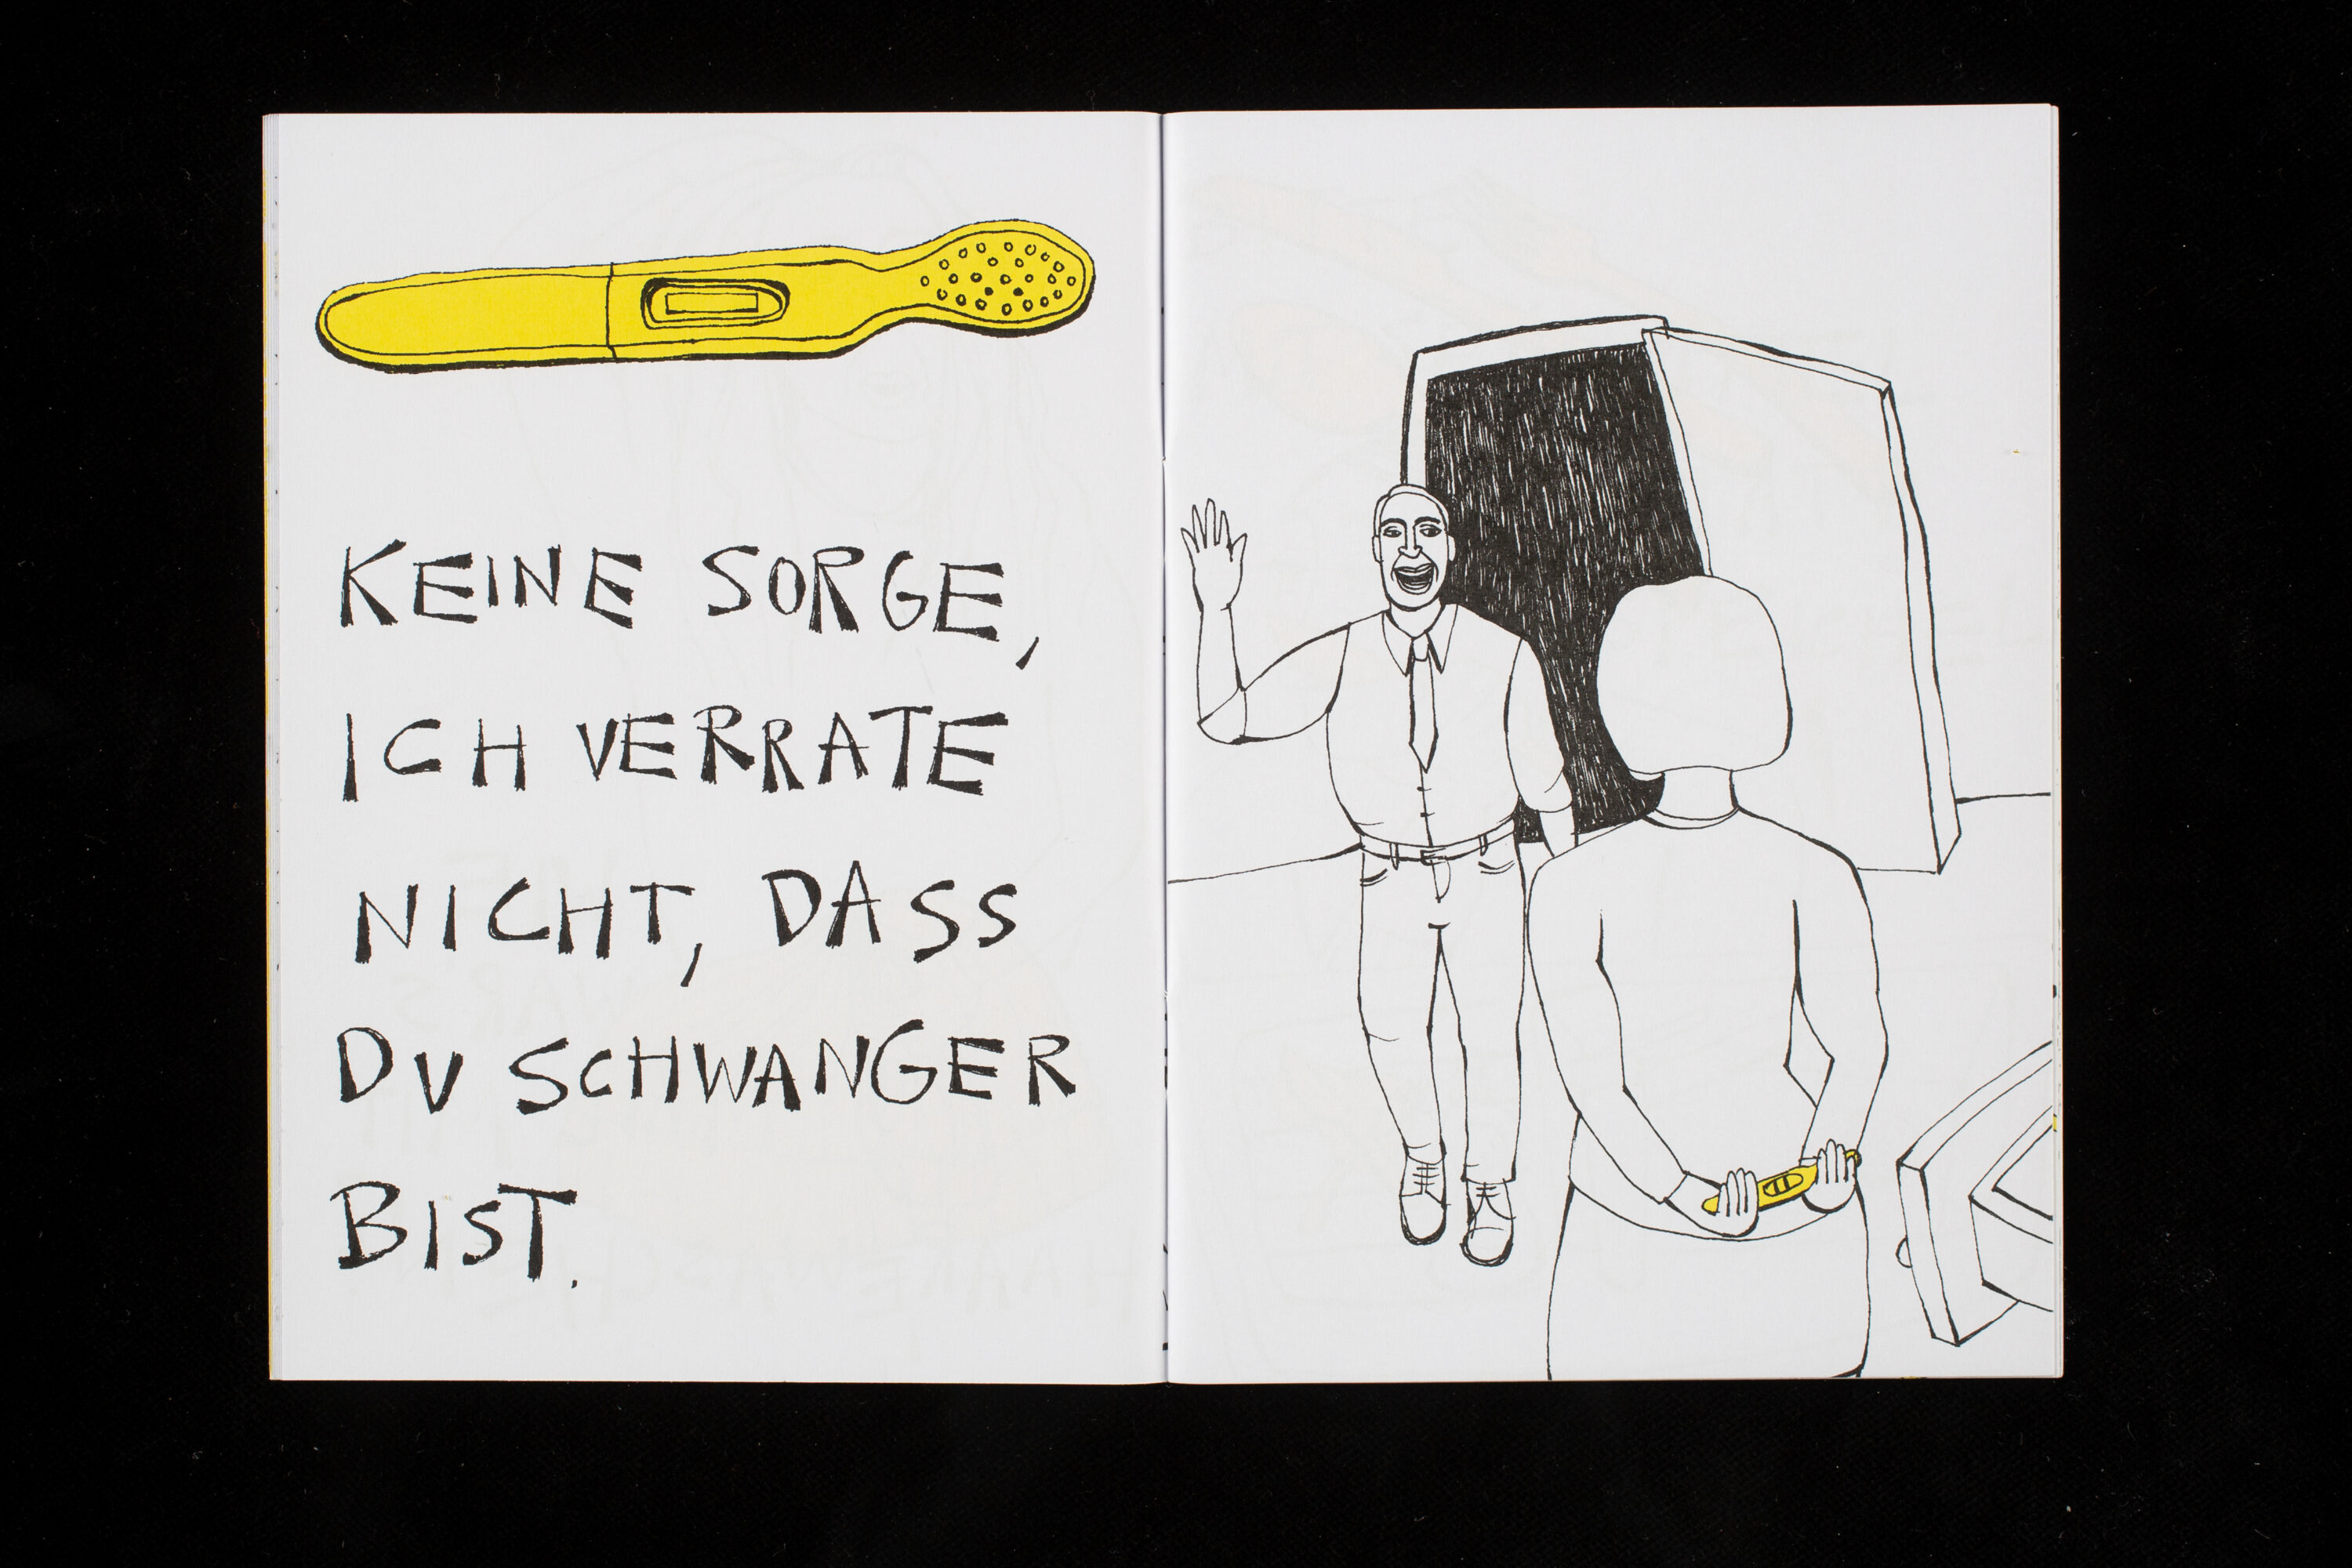 KEINE SORGE,
ICH VERRATE
NICHT, DASS
DU SCHWANGER
BIST.